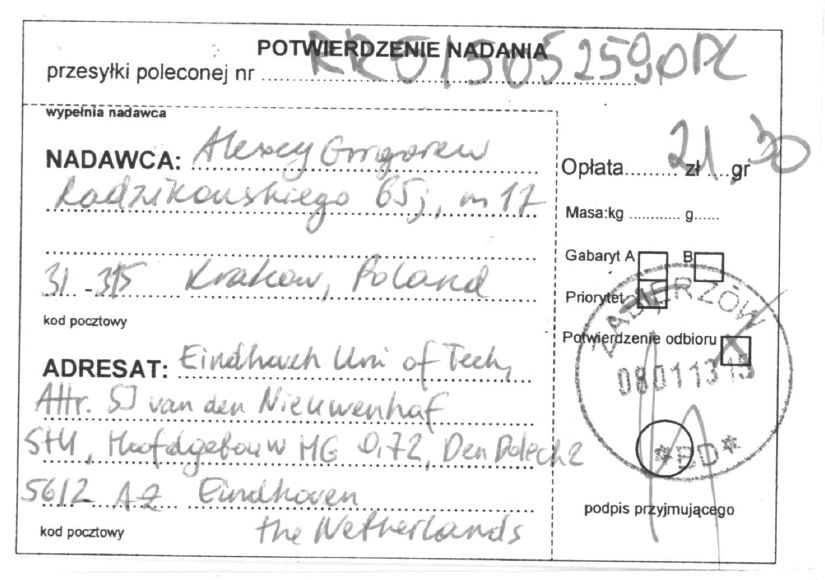 POTWIERDZENIE NADANIA
przesyłki poleconej nr RR 515052590PL
wypełnia nadawca
NADAWCA: Alexey Grigorew
Radzikowskiego 65j, m 17
31-315 Krakow, Poland
kod pocztowy
ADRESAT: Eindhoven Uni of Tech,
Attr. SJ van den Nieuwenhof
STU, Hoofdgebouw HG 0.72, Den Dolech 2
5612 AZ Eindhoven
the Netherlands
kod pocztowy
Opłata 21 zł 30 gr
Masa:kg g
Gabaryt A B
Priorytet
Potwierdzenie odbioru
ZABIERZÓW
080113 15
*BD*
podpis przyjmującego